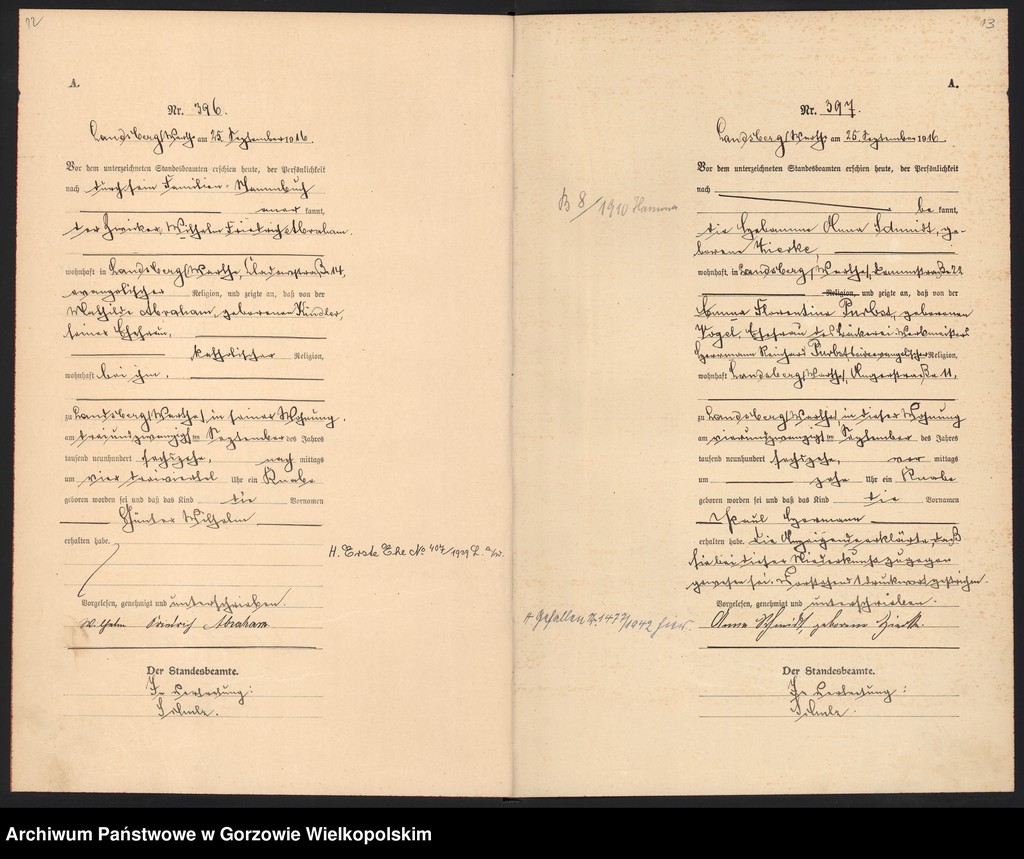 12
A.
Nr. 396.
Landsberg/Warthe am 25. September 1916.
Vor dem unterzeichneten Standesbeamten erschien heute, der Persönlichkeit
nach durch sein Familien-Stammbuch
aner kannt,
der Zwicker Wilhelm Friedrich Abraham.
wohnhaft in Landsberg/Warthe, Cladowstraße 14,
evangelischer Religion, und zeigte an, daß von der
Mathilde Abraham, geborenen Kindler,
seiner Ehefrau,
katholischer Religion,
wohnhaft bei ihm,
zu Landsberg/Warthe/ in seiner Wohnung.
am dreiundzwanzigsten September des Jahres
tausend neunhundert sechszehn, nach mittags
um vier dreiviertel Uhr ein Knabe
geboren worden sei und daß das Kind die Vornamen
Günter Wilhelm
erhalten habe.
H. Erste Ehe No. 404/1939 L. a/w.
Vorgelesen, genehmigt und unterschrieben.
Wilhelm Friedrich Abraham
Der Standesbeamte.
In Vertretung:
13
A.
Nr. 397.
Landsberg/Warthe am 25. September 1916.
Vor dem unterzeichneten Standesbeamten erschien heute, der Persönlichkeit
nach
be kannt,
B 8/1910 Hamma
die Hebamme Anna Schmidt, ge-
borene Zierke,
wohnhaft in Landsberg/Warthe, Dammstraße 22
Religion, und zeigte an, daß von der
Emma Florentine Purbst, geborenen
Vogel, Ehefrau des Bäckerei-Werkmeisters
Herrmann Reinhard Purbst beide evangelischer Religion,
wohnhaft Landsberg/Warthe/, Angerstraße 11,
zu Landsberg/Warthe/, in dieser Wohnung
am vierundzwanzigsten September des Jahres
tausend neunhundert sechszehn, vor mittags
um zehn Uhr ein Knabe
geboren worden sei und daß das Kind die Vornamen
Paul Hermann
erhalten habe. Die Anzeigende erklärte, daß
sie bei dieser Niederkunft zugegen
gewesen sei. Vorstehend 1 Druckwort gestrichen.
Vorgelesen, genehmigt und unterschrieben.
+ Gefallen Nr. 1477/1942 hier.
Anna Schmidt, geborene Zierke.
Der Standesbeamte.
In Vertretung:
Archiwum Państwowe w Gorzowie Wielkopolskim